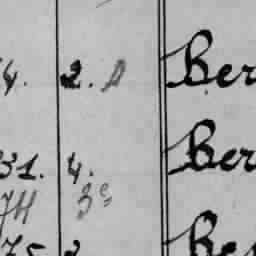 4. 2. A Ber
31. 4. Ber
74 3e
75 2 Be